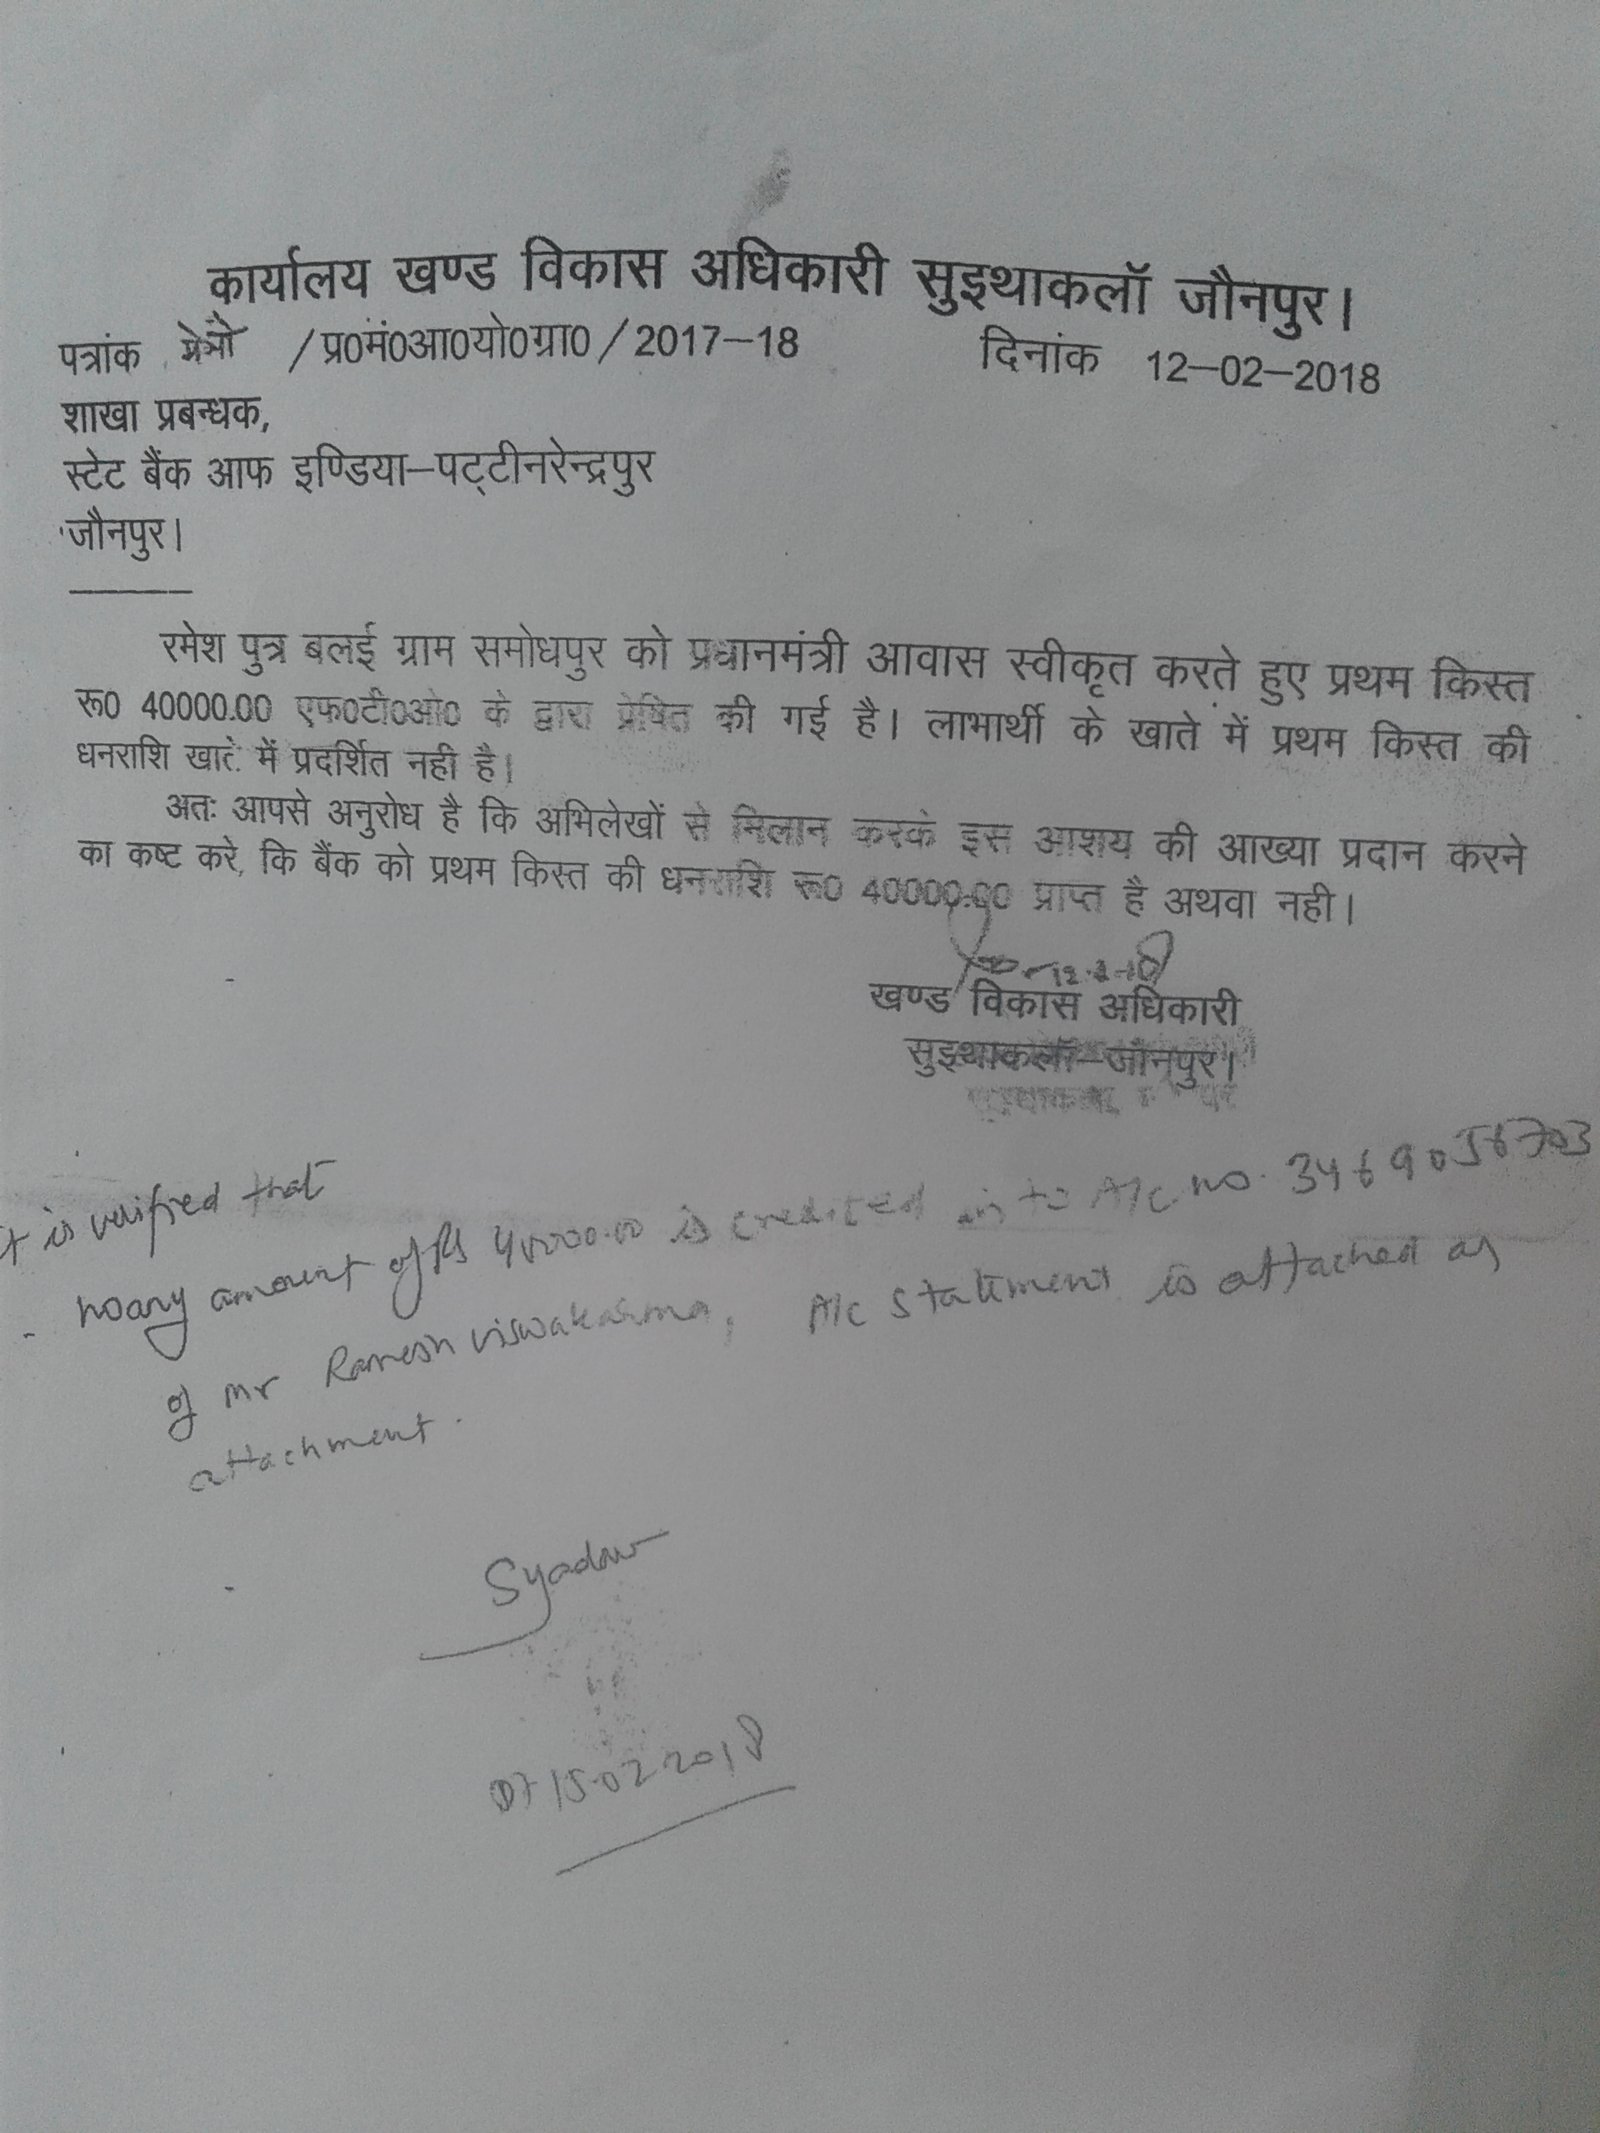 कार्यालय खण्ड विकास अधिकारी सुइथाकलॉ जौनपुर।
पत्रांक /प्र0मं0आ0यो0ग्रा0/2017-18 दिनांक 12-02-2018
शाखा प्रबन्धक,
स्टेट बैंक आफ इण्डिया-पट्टीनरेन्द्रपुर
जौनपुर।
रमेश पुत्र बलई ग्राम समोधपुर को प्रधानमंत्री आवास स्वीकृत करते हुए प्रथम किस्त
रू0 40000.00 एफ0टी0ओ0 के द्वारा प्रेषित की गई है। लाभार्थी के खाते में प्रथम किस्त की
धनराशि खाते में प्रदर्शित नही है।
अतः आपसे अनुरोध है कि अभिलेखों से मिलान करके इस आशय की आख्या प्रदान करने
का कष्ट करे, कि बैंक को प्रथम किस्त की धनराशि रू0 40000.00 प्राप्त है अथवा नही।
12.2.18
खण्ड विकास अधिकारी
सुइथाकलॉ-जौनपुर।
it is verified that
no any amount of Rs 40000.00 is credited in to A/c no. 3469056703
of mr Ramesh viswakarma, A/c statement is attached as
attachment.
Syadav
DT 15.02.2018